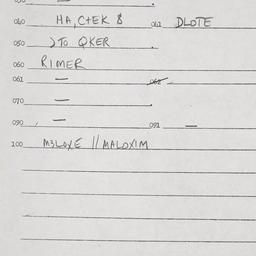 040 HA, CtEK & 041 DLOTE
050 )TO QKER
060 RIMER
061 — 062
070 —
090 — 091 —
100 M3LOXE // MALOXIM